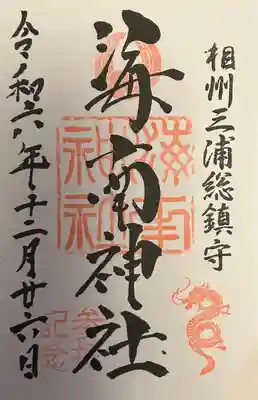 相州三浦総鎮守
海南神社
令和六年十二月廿六日
海南神社
参拝記念